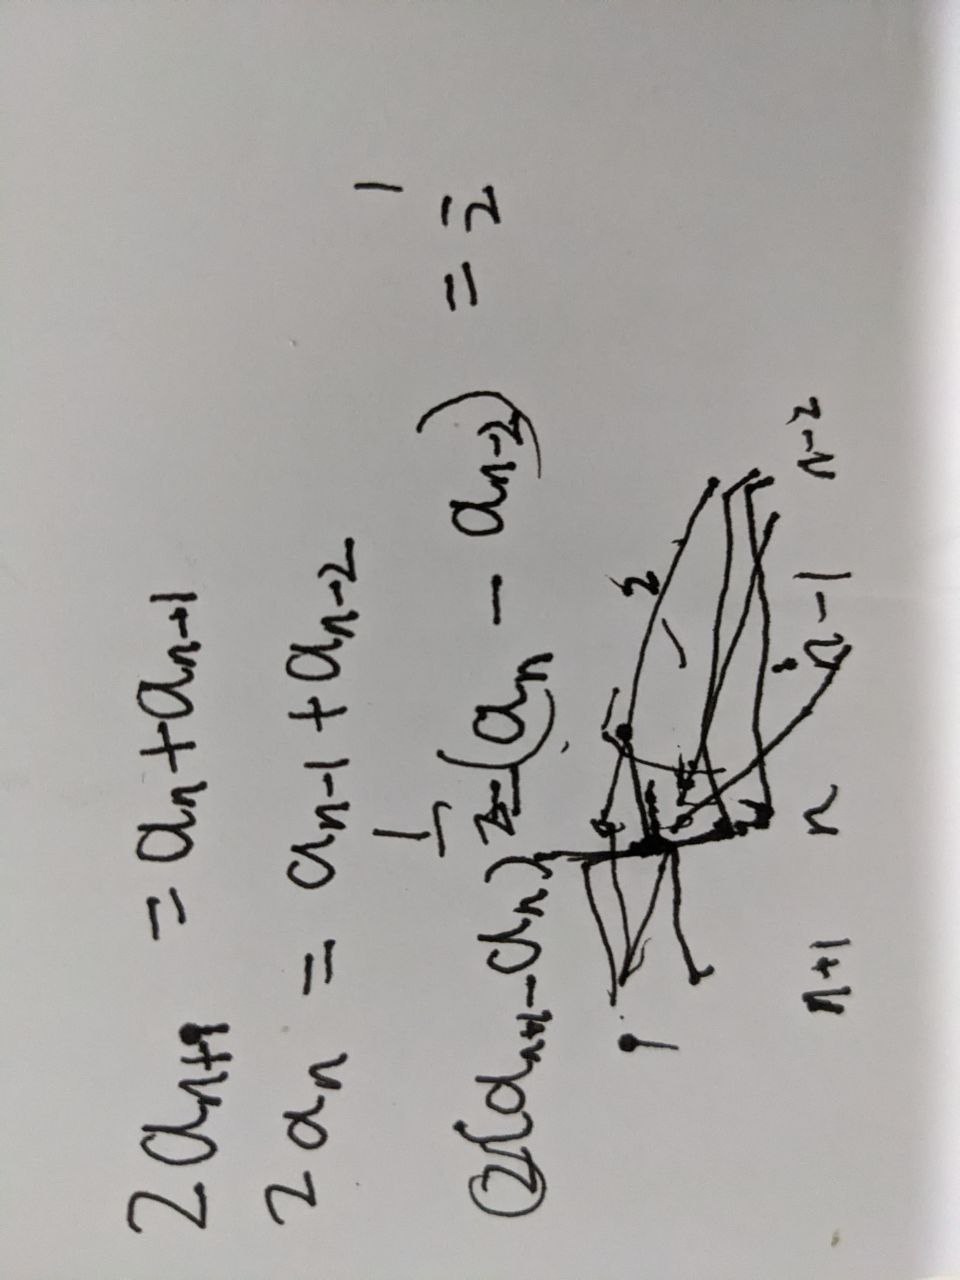 2aₙ₊₁ = aₙ + aₙ₋₁
2aₙ = aₙ₋₁ + aₙ₋₂
2(aₙ₊₁ - aₙ) = 1/2 (aₙ - aₙ₋₂) = 1/2
2
n+1 n n-1 n-2